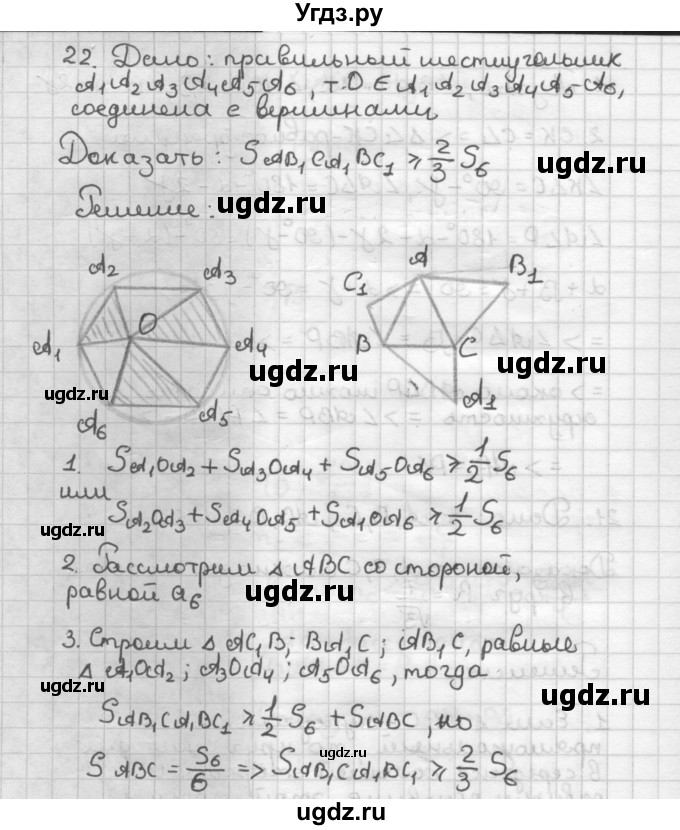 Угдз.ру
22. Дано: правильный шестиугольник
A₁A₂A₃A₄A₅A₆, т.O ∈ A₁A₂A₃A₄A₅A₆,
соединена с вершинами
Доказать: S AB₁CA₁BC₁ ⩾ 2/3 S₆
ugdz.ru
Решение:
ugdz.ru
ugdz.ru
A₂ A₃ A B₁
C₁
O
A₁ A₄ B C
ugdz.ru
ugdz.ru
ugdz.ru
A₆ A₅ A₁
1. S A₁OA₂ + S A₃OA₄ + S A₅OA₆ ⩾ 1/2 S₆
ugdz.ru
или
S A₂OA₃ + S A₄OA₅ + S A₁OA₆ ⩾ 1/2 S₆
ugdz.ru
ugdz.ru
2. Рассмотрим △ABC со стороной,
равной a₆
ugdz.ru
3. Строим △ AC₁B; BA₁C; AB₁C, равные
△ A₁OA₂; A₃OA₄; A₅OA₆, тогда
ugdz.ru
ugdz.ru
S AB₁CA₁BC₁ ⩾ 1/2 S₆ + S ABC, но
ugdz.ru
S ABC = S₆/6 => S AB₁CA₁BC₁ ⩾ 2/3 S₆
ugdz.ru
ugdz.ru